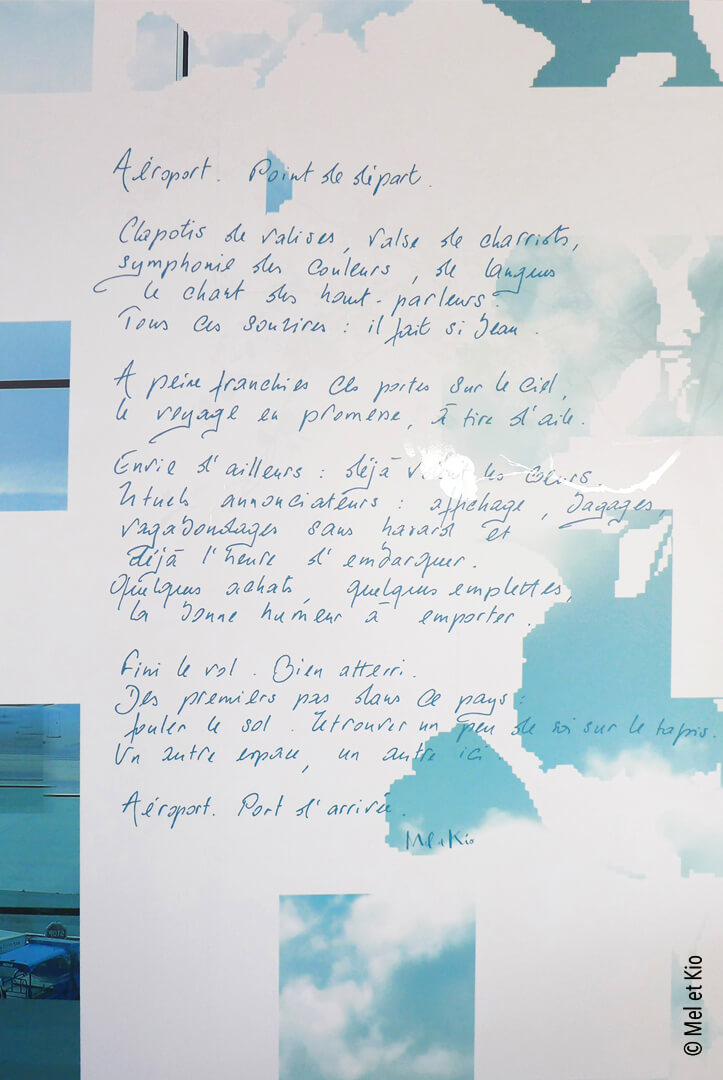 Aéroport. Point de départ.
Clapotis de valises, valse de charriots,
symphonie des couleurs, de langues
le chant des haut-parleurs.
Tous ces sourires : il fait si beau.
A peine franchies ces portes sur le ciel,
le voyage en promesse, à tire d'aile.
Envie d'ailleurs : déjà les cœurs.
Rituels annonciateurs : affichage, bagages,
vagabondages sans hasard et
déjà l'heure d'embarquer.
Quelques achats, quelques emplettes,
la bonne humeur à emporter.
Fini le vol. Bien atterri.
Des premiers pas dans ce pays :
fouler le sol. Retrouver un peu de soi sur le tapis.
Un autre espace, un autre ici.
Aéroport. Port d'arrivée.
Mel et Kio
© Mel et Kio